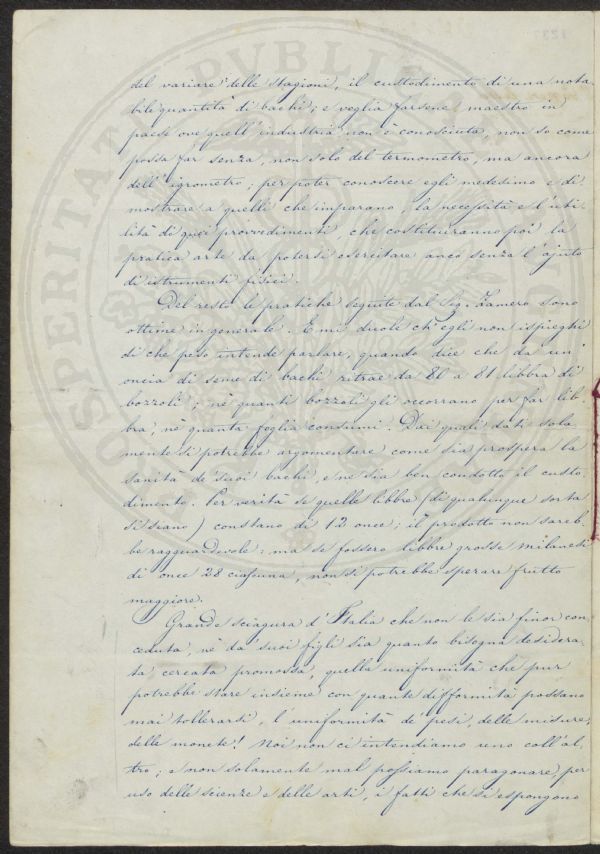 del variare delle stagioni, il custodimento di una nota
bile quantità di bachi; e voglia farsene maestro in
paese ove quell'industria non è conosciuta, non so come
possa far senza, non solo del termometro, ma ancora
dell'igrometro; per poter conoscere egli medesimo e di
mostrare a quelli che imparano, la necessità e l'uti-
lità di quei provvedimenti, che costituiranno poi la
pratica arte da potersi esercitare anco senza l'ajuto
di istrumenti fisici.
Del resto le pratiche seguite dal Sig. Zamero sono
ottime in generale. E mi duole ch'egli non ispieghi
di che peso intende parlare, quando dice che da un'
oncia di seme di bachi ritrae da 80 a 81 libbra di
bozzoli; nè quanti bozzoli gli occorrano per far lib-
bra; nè quanta foglia consumi. Dai quali dati sola
mente si potrebbe argomentare come sia prospera la
sanità de' suoi bachi, e ne sia ben condotto il custo-
dimento. Per verità se quelle libbre (di qualunque sorta
si siano) constano di 12 once; il prodotto non sareb-
be ragguardevole: ma se fossero libbre grosse milanesi
di once 28 ciascuna, non si potrebbe sperare frutto
maggiore.
Grande sciagura d'Italia che non le sia finor con
ceduta, nè da' suoi figli sia quanto bisogna desidera-
ta, cercata promossa, quella uniformità che pur
potrebbe stare insieme con quante difformità possano
mai tollerarsi, l'uniformità de' pesi, delle misure,
delle monete! Noi non ci intendiamo uno coll'al-
tro; e non solamente mal possiamo paragonare, per
uso delle scienze e delle arti, i fatti che si espongono